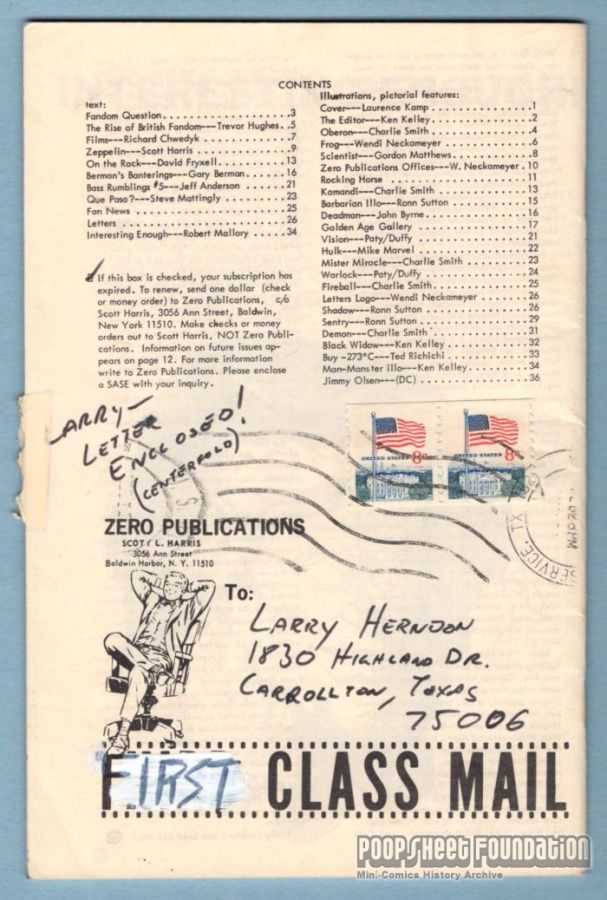 CONTENTS
text:
Fandom Question . . . . . . . . . . . . . . . . . . . . 3
The Rise of British Fandom---Trevor Hughes . . 5
Films---Richard Chwedyk . . . . . . . . . . . . . . . 7
Zeppelin---Scott Harris . . . . . . . . . . . . . . . . 9
On the Rack---David Fryxell . . . . . . . . . . . . 13
Berman's Banterings---Gary Berman . . . . . . . 16
Bass Rumblings #5---Jeff Anderson . . . . . . . 21
Que Paso?---Steve Mattingly . . . . . . . . . . . 23
Fan News . . . . . . . . . . . . . . . . . . . . . . . 25
Letters . . . . . . . . . . . . . . . . . . . . . . . . 26
Interesting Enough---Robert Mallory . . . . . . 34
If this box is checked, your subscription has
expired. To renew, send one dollar (check
or money order) to Zero Publications, c/o
Scott Harris, 3056 Ann Street, Baldwin,
New York 11510. Make checks or money
orders out to Scott Harris, NOT Zero Publi-
cations. Information on future issues ap-
pears on page 12. For more information
write to Zero Publications. Please enclose
a SASE with your inquiry.
illustrations, pictorial features:
Cover---Laurence Kamp . . . . . . . . . . . . . . . 1
The Editor---Ken Kelley . . . . . . . . . . . . . . . 2
Oberon---Charlie Smith . . . . . . . . . . . . . . . 4
Frog---Wendi Neckameyer . . . . . . . . . . . . . 6
Scientist---Gordon Matthews . . . . . . . . . . . . 8
Zero Publications Offices---W. Neckameyer . 10
Rocking Horse . . . . . . . . . . . . . . . . . . . . 11
Kamandi---Charlie Smith . . . . . . . . . . . . . . 13
Barbarian Illo---Ronn Sutton . . . . . . . . . . . 15
Deadman---John Byrne . . . . . . . . . . . . . . . 16
Golden Age Gallery . . . . . . . . . . . . . . . . 17
Vision---Paty/Duffy . . . . . . . . . . . . . . . . . 21
Hulk---Mike Marvel . . . . . . . . . . . . . . . . . 22
Mister Miracle---Charlie Smith . . . . . . . . . . 23
Warlock---Paty/Duffy . . . . . . . . . . . . . . . . 24
Fireball---Charlie Smith . . . . . . . . . . . . . . 25
Letters Logo---Wendi Neckameyer . . . . . . . . 26
Shadow---Ronn Sutton . . . . . . . . . . . . . . . 26
Sentry---Ronn Sutton . . . . . . . . . . . . . . . . 29
Demon---Charlie Smith . . . . . . . . . . . . . . . 31
Black Widow---Ken Kelley . . . . . . . . . . . . . 32
Buy -273°C---Ted Richichi . . . . . . . . . . . . . 33
Man-Monster illo---Ken Kelley . . . . . . . . . . 34
Jimmy Olsen---(DC) . . . . . . . . . . . . . . . . . 36
LARRY-
LETTER
ENCLOSED!
(CENTERFOLD)
UNITED STATES 8c
UNITED STATES 8c
SERVICE, TX
ZERO PUBLICATIONS
SCOTT L. HARRIS
3056 Ann Street
Baldwin Harbor, N. Y. 11510
To:
LARRY HERNDON
1830 HIGHLAND DR.
CARROLLTON, TEXAS
75006
FIRST CLASS MAIL
POOPSHEET FOUNDATION
Mini-Comics History Archive